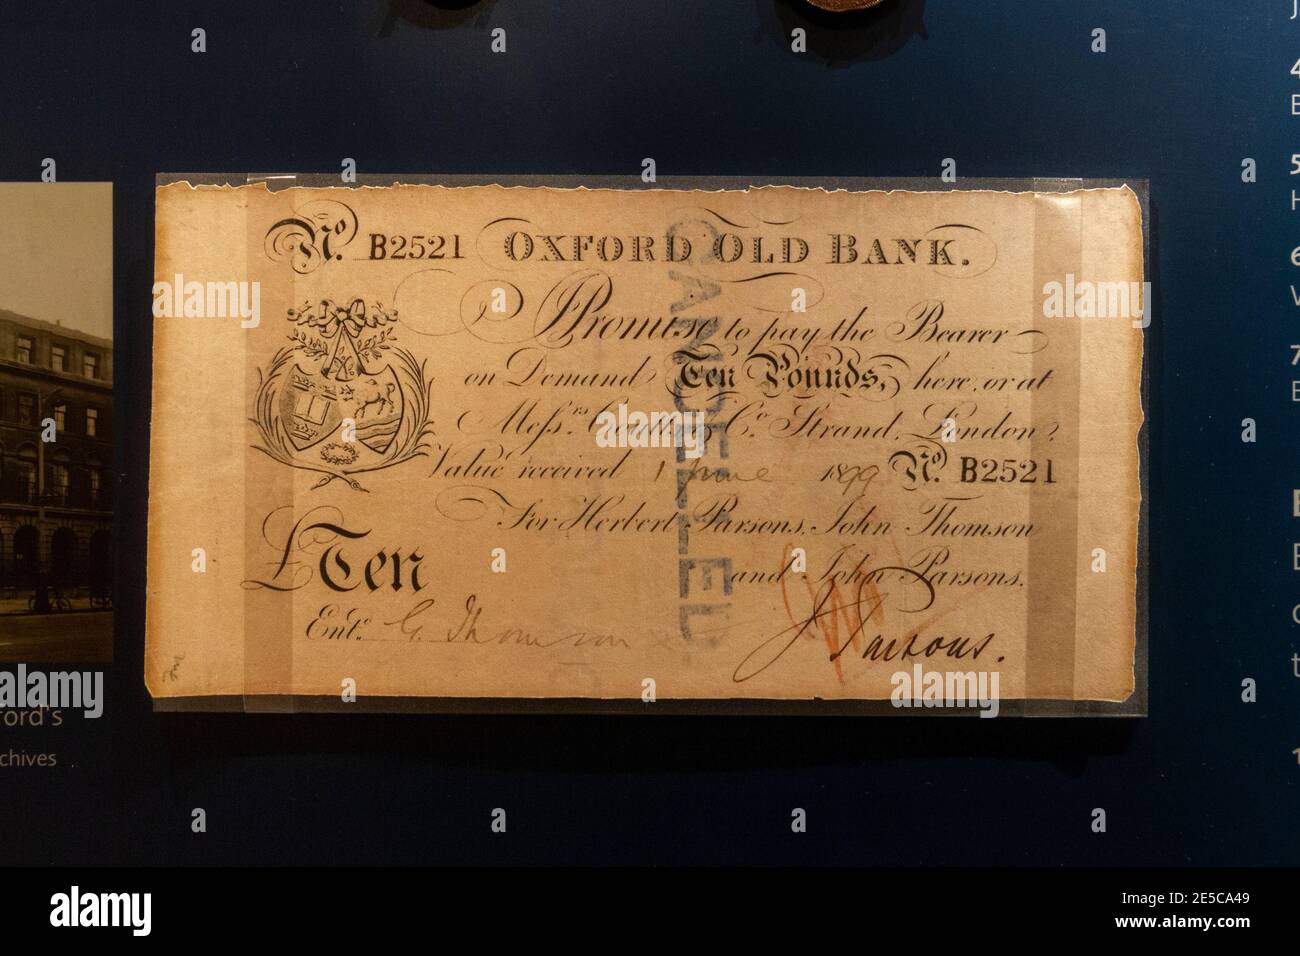 No. B2521 OXFORD OLD BANK.
Promise to pay the Bearer
on Demand Ten Pounds, here, or at
Messrs. Coutts & Co. Strand, London;
Value received 1 June 1899 No. B2521
For Herbert Parsons, John Thomson
£Ten and John Parsons.
Entd. G. Thomson J Parsons.
CANCELLED
ford's
chives
4
5
6
7
alamy
alamy
Image ID: 2E5CA49
www.alamy.com